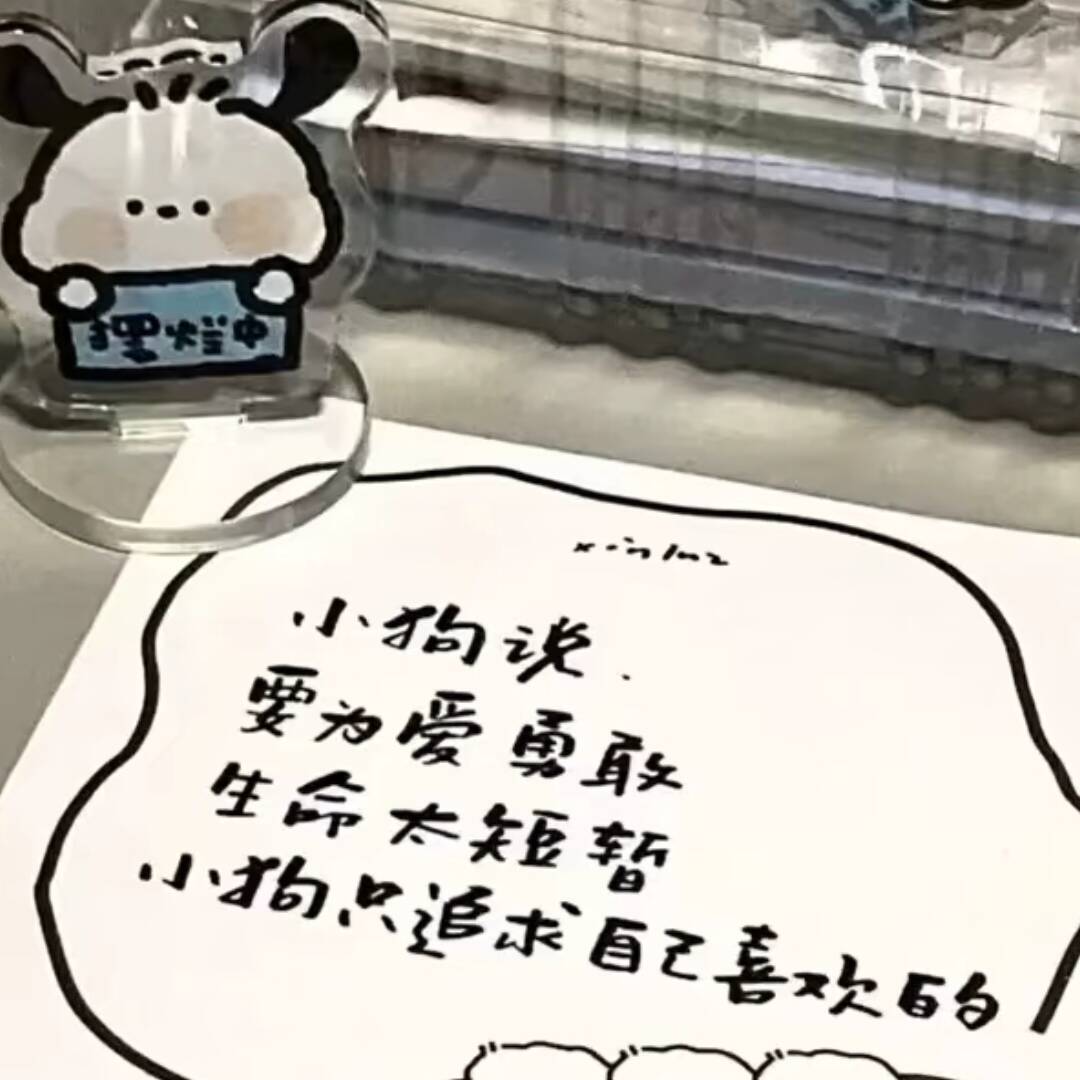 摆烂中
小狗说.
要为爱勇敢
生命太短暂
小狗只追求自己喜欢的